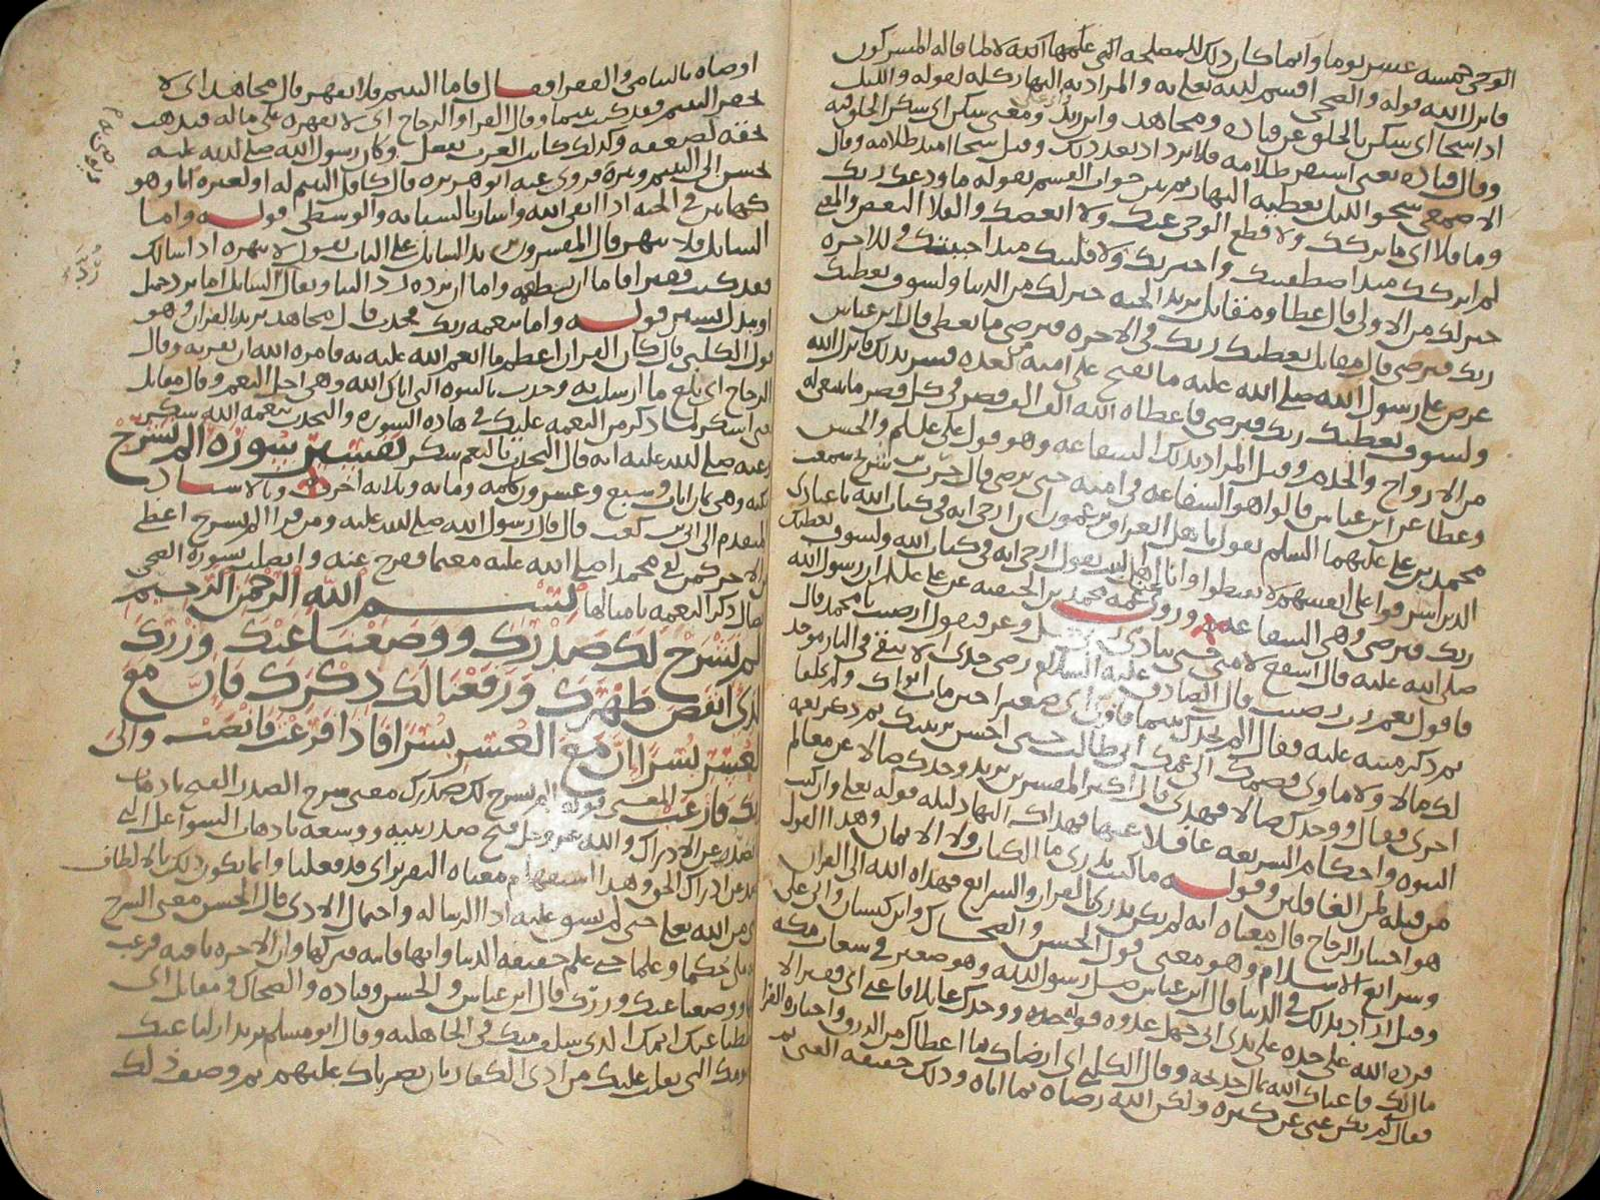 الوحي خمسه عشر يوما وانما كان ذلك للمصلحه التي علمها الله لا لما قاله المشركون
فانزل الله قوله والضحى اقسم الله تعلى به والمراد به النهار كله لقوله والليل
اذا سجا اي سكن بالخلق عن قتاده ومجاهد وابن زيد ومعنى سكن اي سكن الخلق فيه
وقال قتاده يعني استقر ظلامه فلا يزداد بعد ذلك وقيل سجا امتد ظلامه وقال
الاصمعي سجو الليل تغطيه النهار ثم بين جواب القسم بقوله ما ودعك ربك
وما قلا اي ما تركك ولا قطع الوحي عنك ولا ابغضك والقلا البغض والمعنى
لم يتركك منذ اصطفيك واختارك ولا قليك منذ احببتك وللاخره
خير لك من الاولى قال عطا ومقاتل يريد الجنه خير لك من الدنيا ولسوف يعطيك
ربك فترضى قال مقاتل يعطيك ربك في الاخره فترضى ما تعطى قال ابن عباس
عرض على رسول الله صلى الله عليه ما يفتح على امته بعده فسر بذلك فانزل الله
ولسوف يعطيك ربك فترضى فاعطاه الله الف الف قصر في كل قصر ما ينبغي له
من الازواج والخدم وقيل المراد بذلك الشفاعه وهو قول علي عللم والحسن
وعطا عن ابن عباس قالوا هو الشفاعه في امته حتى يرضى قال حرب بن شريح سمعت
محمد بن علي عليهما السلم يقول يا اهل العراق تزعمون ان ارجى ايه في كتاب الله يا عبادي
الذين اسرفوا على انفسهم لا تقنطوا وانا اهل البيت نقول ارجى ايه في كتاب الله ولسوف يعطيك
ربك فترضى وهي الشفاعه وروى عمه محمد بن الحنفيه عن علي عللم ان رسول الله
صلى الله عليه قال اشفع لامتي حتى ينادي ربي عز وجل ارضيت يا محمد
فاقول نعم رب رضيت قال الصادق عليه السلام رضى جدي ان لا يبقى في النار موحد
ثم ذكر منته عليه فقال الم يجدك يتيما فاوى اي صغيرا حين مات ابواك ولم يخلفا
لك مالا ولا ماوى فضمك الى عمك ابي طالب حتى احسن تربيتك ثم ذكر نعمه
اخرى فقال ووجدك ضالا فهدى قال اكثر المفسرين يريد وجدك ضالا عن معالم
النبوه واحكام الشريعه غافلا عنها فهداك اليها دليله قوله تعلى وان كنت
من قبله لمن الغافلين وقوله ما كنت تدري ما الكتاب ولا الايمان وهذا القول
هو اختيار الزجاج قال معناه انه لم يكن يدري القران والشرايع فهداه الله الى القران
وشرايع الاسلام وهو معنى قول الحسن والضحاك وابن كيسان وابي علي
وقيل اراد بذلك في الدنيا قال ابن عباس ضل رسول الله وهو صغير في شعاب مكه
فرده الله على جده على يدي ابي جهل عدوه قوله ووجدك عايلا فاغنى اي فقيرا لا
مال لك فاغناك الله بمال خديجه وقال الكلبي اي ارضاك بما اعطاك من الرزق واختاره الفرا
فقال لم يكن غنى عن كثره ولكن الله رضاه بما اتاه وذلك حقيقه الغنى ثم
اوصاه باليتامى والفقرا فقال فاما اليتيم فلا تقهر قال مجاهد اي لا
تحقر اليتيم فقد كنت يتيما وقال الفرا والزجاج اي لا تقهره على ماله فتذهب
بحقه لضعفه وكذلك كانت العرب تفعل وكان رسول الله صلى الله عليه
يحسن الى اليتيم ويبره فروى عنه ابو هريره قال كافل اليتيم له او لغيره انا وهو
كهاتين في الجنه اذا اتقى الله واشار بالسبابه والوسطى قوله واما
السايل فلا تنهر قال المفسرون يريد السايل على الباب يقول لا تنهره اذا سالك
فقد كنت فقيرا فاما ان تطعمه واما ان ترده ردا لينا ويقال السايل اما برد جميل
او ببذل يسير قوله واما بنعمه ربك فحدث قال مجاهد يريد القران وهو
قول الكلبي قال كان القران اعظم ما انعم الله عليه به فامره الله ان يقريه وقال
الزجاج اي بلغ ما ارسلت به وحدث بالنبوه التي اتاك الله وهي اجل النعم وقال مقاتل
يعني اشكر لما ذكر من النعمه عليك في هاذه السوره والتحدث بنعمه الله شكر
وعنه صلى الله عليه انه قال التحدث بالنعم شكر تفسير سوره الم نشرح
مكيه وهي ثمان ايات وسبع وعشرون كلمه ومايه وثلاثه احرف وبالاسناد
المتقدم الى ابي بن كعب قال قال رسول الله صلى الله عليه ومن قرا الم نشرح اعطي
من الاجر كمن لقي محمدا صلى الله عليه مغتما ففرج عنه واتصلت بسوره الضحى
اتصال ذكر النعمه بامثالها بسم الله الرحمن الرحيم
الم نشرح لك صدرك ووضعنا عنك وزرك
الذي انقض ظهرك ورفعنا لك ذكرك فان مع
العسر يسرا ان مع العسر يسرا فاذا فرغت فانصب والى
ربك فارغب المعنى قوله الم نشرح لك صدرك معنى شرح الصدر الفتح باذهاب
الصدر عن الادراك والله عز وجل فتح صدر نبيه ووسعه باذهاب الشواغل التي
تصد عن ادراك الحق وهذا استفهام معناه التقرير اي قد فعلنا وانما يكون ذلك بالالطاف
من الله تعلى حتى لم يشق عليه اداا الرساله واحتمال الاذى قال الحسن معنى الشرح
ملي حكما وعلما حتى علم حقيقه الدنيا وانها فانيه فتركها وان الاخره باقيه فرغب
ووضعنا عنك وزرك قال ابن عباس والحسن وقتاده والضحاك ومقاتل اي
حططنا عنك اثمك الذي سلف منك في الجاهليه وقال ابو مسلم يريد ازلنا عنك
همومك التي ثقلت عليك من اذى الكفار بان نصرناك عليهم ثم وصف ذلك